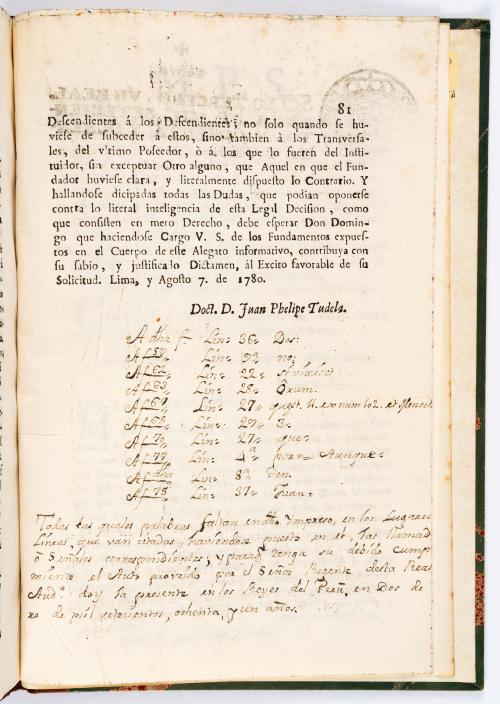 81
Descendientes á los Descendientes; no solo quando se hu-
viese de subceder á estos, sino tambien à los Transversa-
les, del vltimo Poseedor, ò á los que lo fueren del Insti-
tuidor, sin exceptuar Otro alguno, que Aquel en que el Fun-
dador huviese clara, y literalmente dispuesto lo Contrario. Y
hallandose dicipadas todas las Dudas, que podian oponerse
contra lo literal inteligencia de esta Legal Decision, como
que consisten en mero Derecho, debe esperar Don Domin-
go que haciendose Cargo V. S. de los Fundamentos expues-
tos en el Cuerpo de este Alegato informativo, contribuya con
su sabio, y justificado Dictamen, ál Excito favorable de su
Solicitud. Lima, y Agosto 7. de 1780.
Doct. D. Juan Phelipe Tudela.
A dha f Lin. 36 Dos.
Af 59 Lin. 93 no;
Af 62 Lin. 22
Af 63 Lin. 28
Af 67 Lin. 27
Af 68 Lin. 29 3
Af 70 Lin. 27 que
Af 77 Lin. 4ª por Aunque
Af dha Lin. 8ª den
Af 78 Lin. 37 Juan
Todas las quales palabras faltan en dho Ympreso, en los Lugares
Lineas, que van citadas, haviendose puesto en el, las llamad
ò Señales correspondientes; y para q tenga su debido Cump
miento el Auto proveido por el Señor Regente desta Real
Audª doy la presente en los Reyes del Perú, en Dos de
ro de mil setecientos, ochenta, y un años.